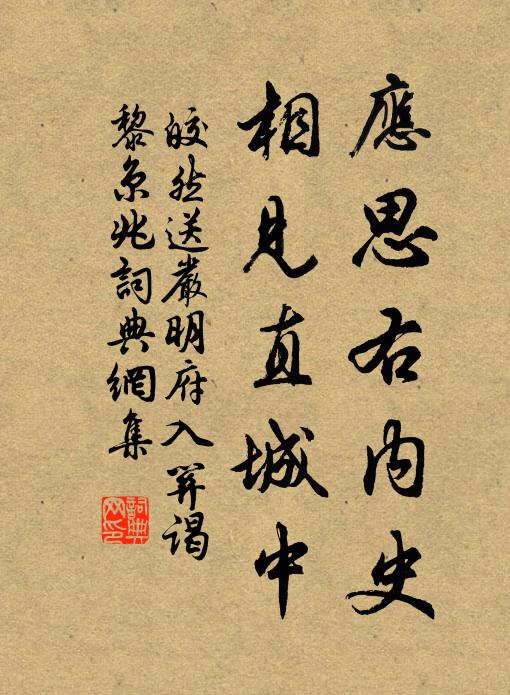 應思右內史
相見直城中
皎然送嚴明府入關謁
黎京兆詞典網集
詞典网印